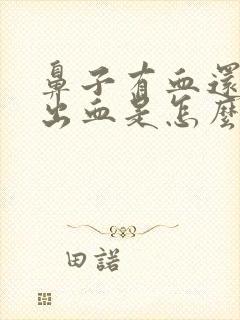 鼻子有血還
出血是怎麼
田諾